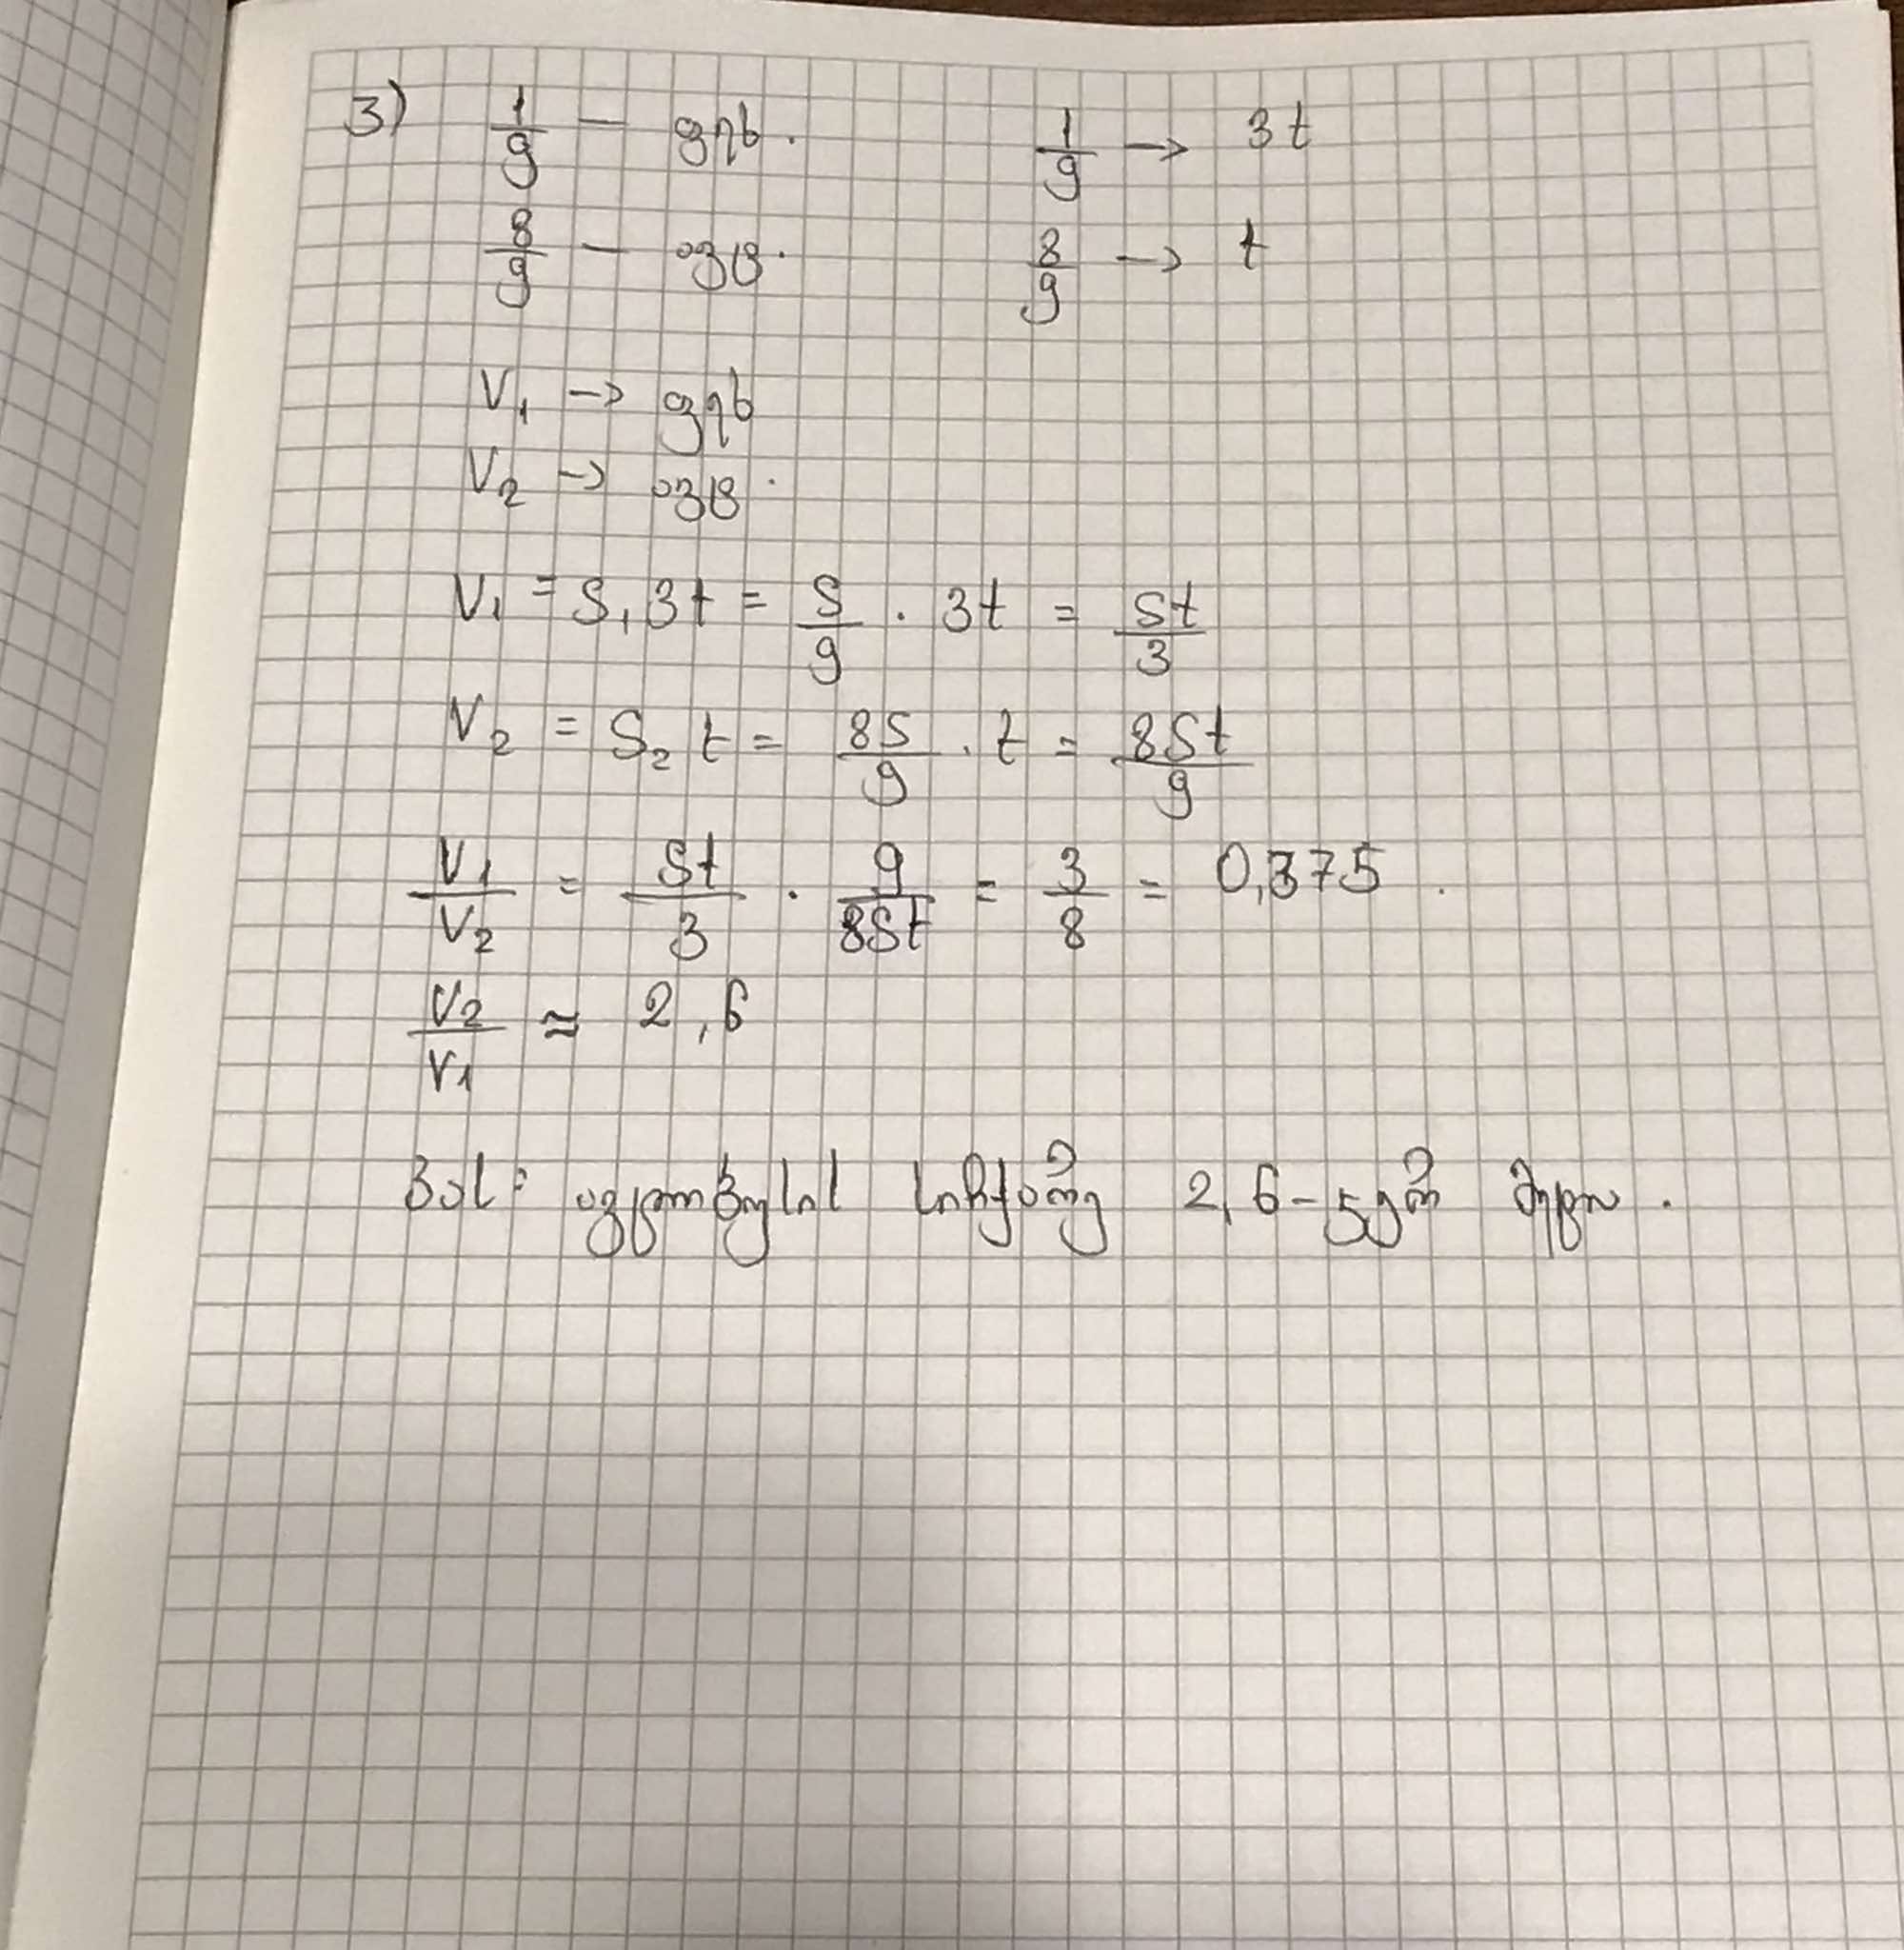 3) 1/9 — ფეხ. 1/9 → 3t
8/9 — ავტ. 8/9 → t
V₁ → ფეხ
V₂ → ავტ.
V₁ = S₁3t = S/9 · 3t = St/3
V₂ = S₂ t = 8S/9 · t = 8St/9
V₁/V₂ = St/3 · 9/8St = 3/8 = 0,375.
V₂/V₁ ≈ 2,6
პას: ავტობუსის სიჩქარე 2,6-ჯერ მეტია.